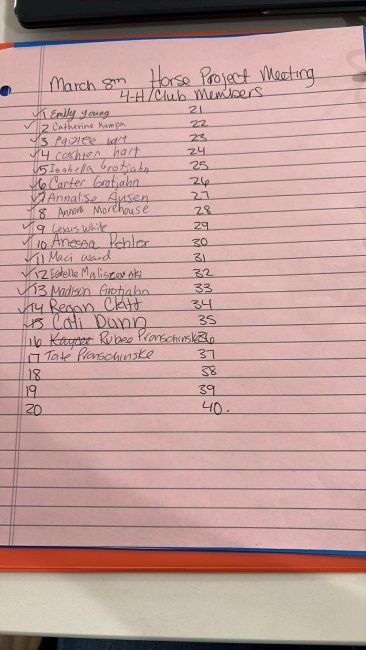 March 8th Horse Project Meeting
4-H/Club Members
✓1 Emily Young 21
✓2 Catherine Kampa 22
✓3 Paizlee Hart 23
✓4 Cashten hart 24
✓5 Isabella Grotjahn 25
✓6 Carter Grotjahn 26
✓7 Annalise 27
✓8 Annora Morehouse 28
✓9 Lexus White 29
✓10 Anessa Pehler 30
✓11 Maci Ward 31
✓12 Estelle Maliszewski 32
✓13 Madison Grotjahn 33
✓14 Regan Clatt 34
✓15 Cali Dunn 35
16 Rubee Pronschinske 36
17 Tate Pronschinske 37
18 38
19 39
20 40.